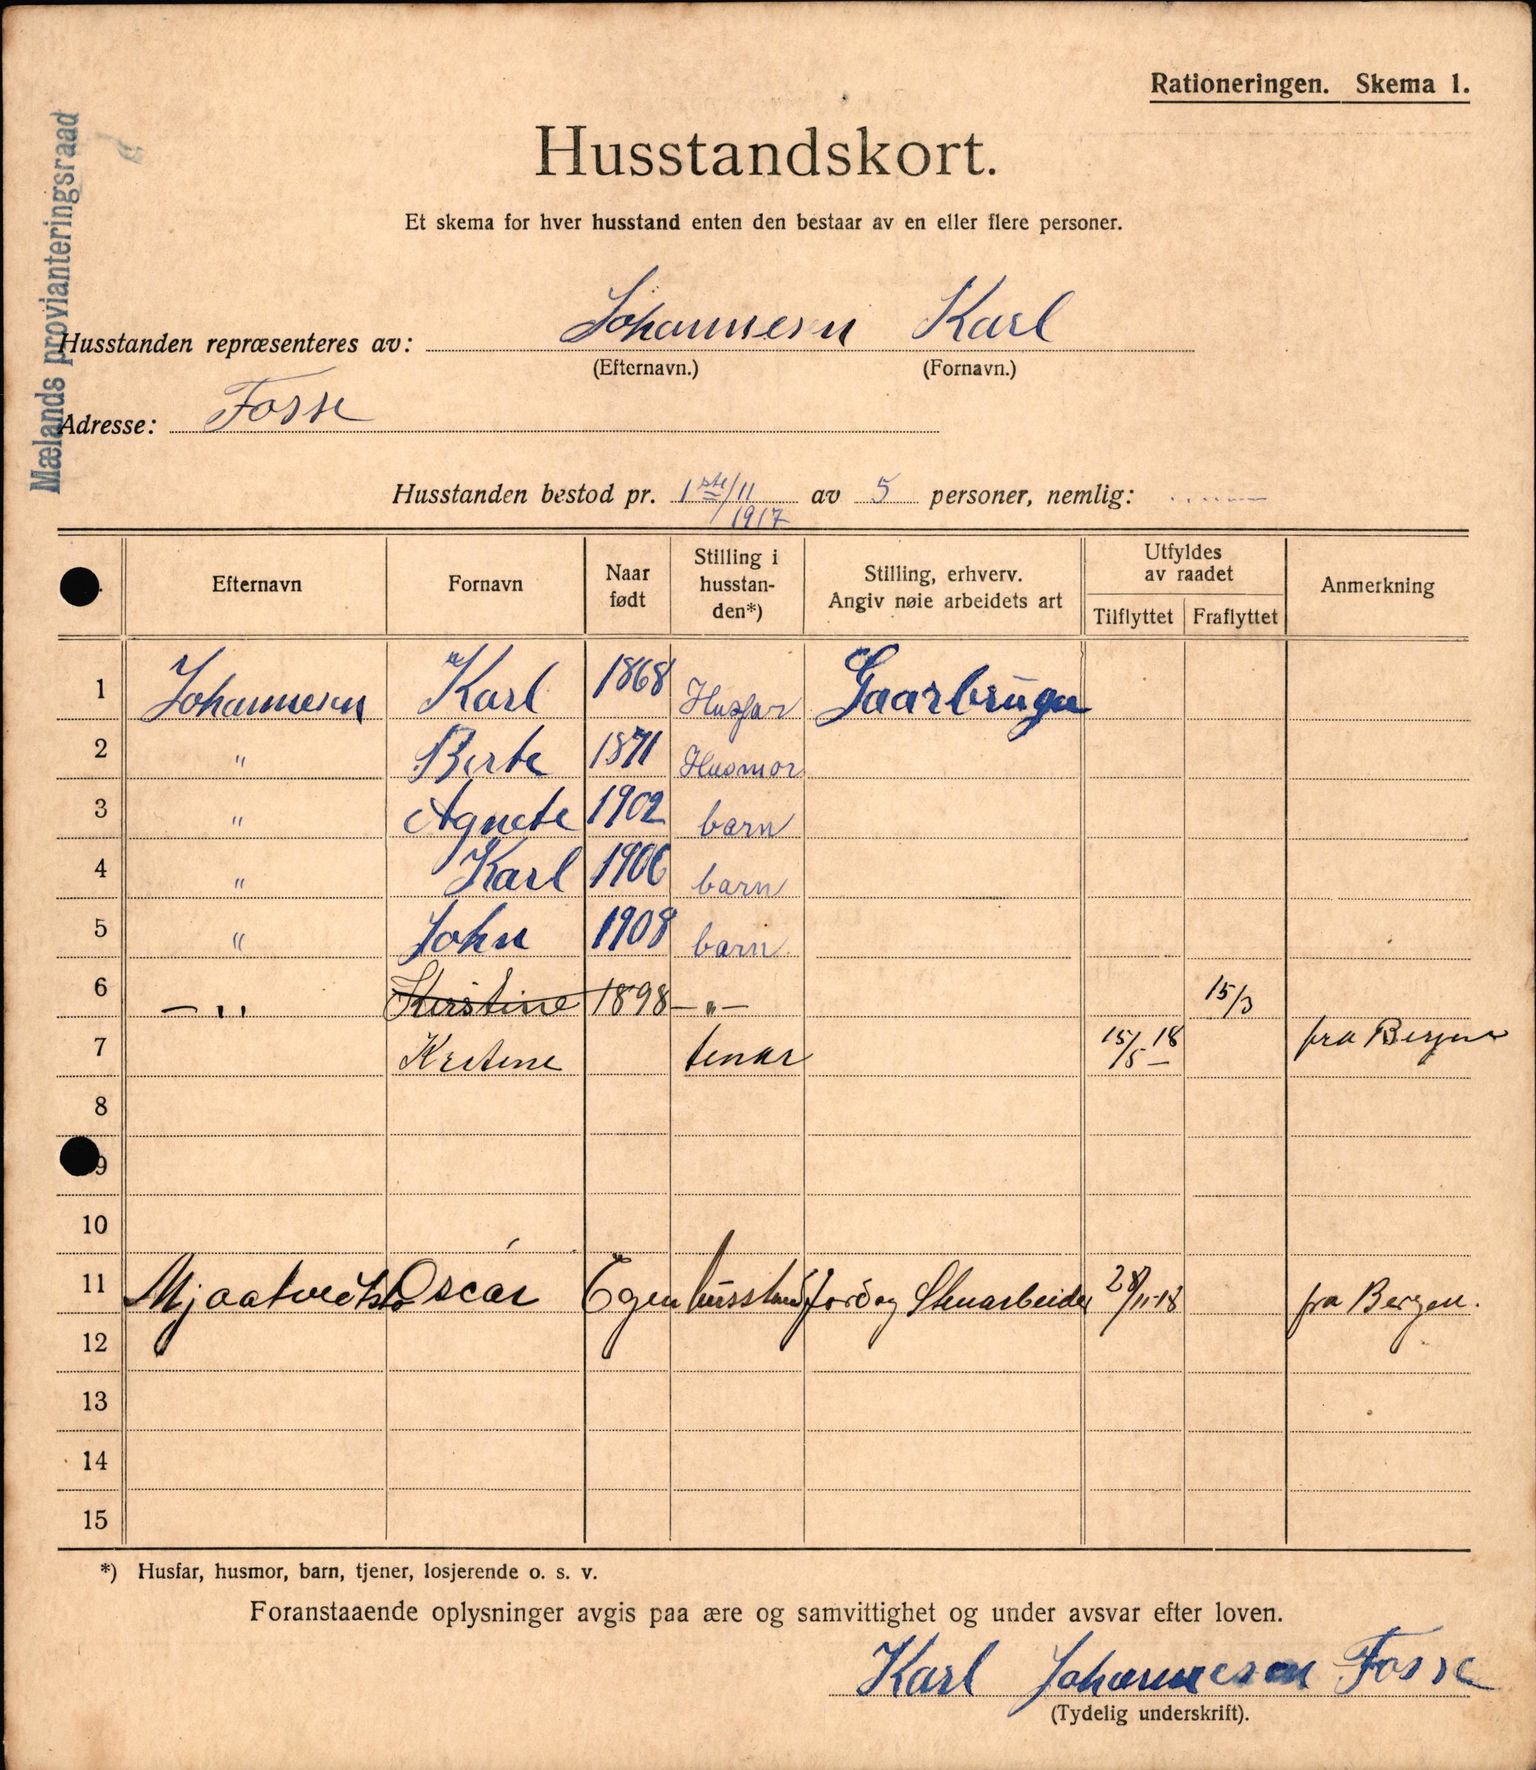 Rationeringen. Skema 1.
Mælands provianteringsraad
Husstandskort.
Et skema for hver husstand enten den bestaar av en eller flere personer.
Husstanden repræsenteres av: Johannesen Karl
(Efternavn.) (Fornavn.)
Adresse: Fosse
Husstanden bestod pr. 1ste/11 1917 av 5 personer, nemlig:
Efternavn Fornavn Naar født Stilling i husstanden*) Stilling, erhverv. Angiv nøie arbeidets art Utfyldes av raadet Tilflyttet Fraflyttet Anmerkning
1 Johannesen Karl 1868 Husfar Gaarbruger
2 " Berte 1871 Husmor
3 " Agnete 1902 barn
4 " Karl 1906 barn
5 " John 1908 barn.
6 — " Kristine 1898 — " — 15/3
7 Kristine tener 15/5 18 fra Bergen
8
9
10
11 Mjaatvedt Oscar Egen husstand Jord og Stenarbeider 28/11-18 fra Bergen.
12
13
14
15
*) Husfar, husmor, barn, tjener, losjerende o. s. v.
Foranstaaende oplysninger avgis paa ære og samvittighet og under avsvar efter loven.
Karl Johannesen Fosse
(Tydelig underskrift).